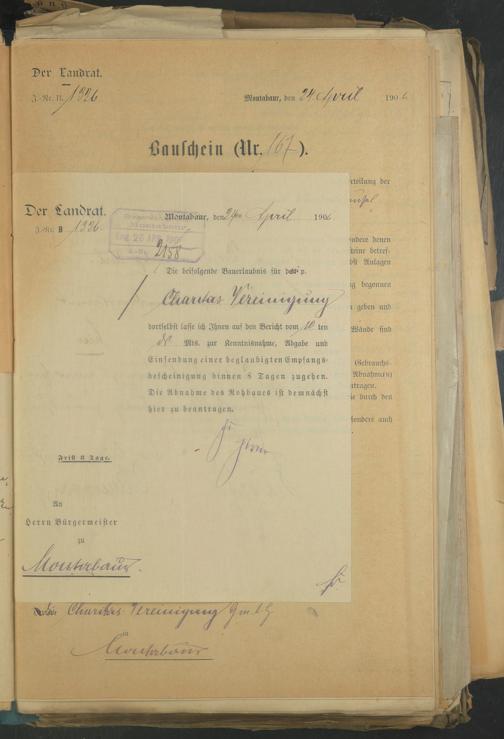 Der Landrat.
J.-Nr. II. 1326
Montabaur, den 24 April 190
Bauschein (Nr. 167).
rteilung der
Der Landrat.
J.-Nr. 1326
Montabaur, den 24ten April 190
2158
Die beifolgende Bauerlaubnis für p.
Charitas Vereinigung
dortselbst lasse ich Ihnen auf den Bericht vom 10 ten
ds Mts. zur Kenntnisnahme, Abgabe und
Einsendung einer beglaubigten Empfangs-
bescheinigung binnen 8 Tagen zugehen.
Die Abnahme des Rohbaues ist demnächst
hier zu beantragen.
Frist 8 Tage.
An
Herrn Bürgermeister
zu
Montabaur.
ndere denen
eine betref-
bst Anlagen
ng begonnen
n geben und
Wände sind
Gebrauchs-
Abnahme(n)
ntragen.
ie durch den
sonders auch
die Charitas Vereinigung G.m.b.H
zu
Montabaur